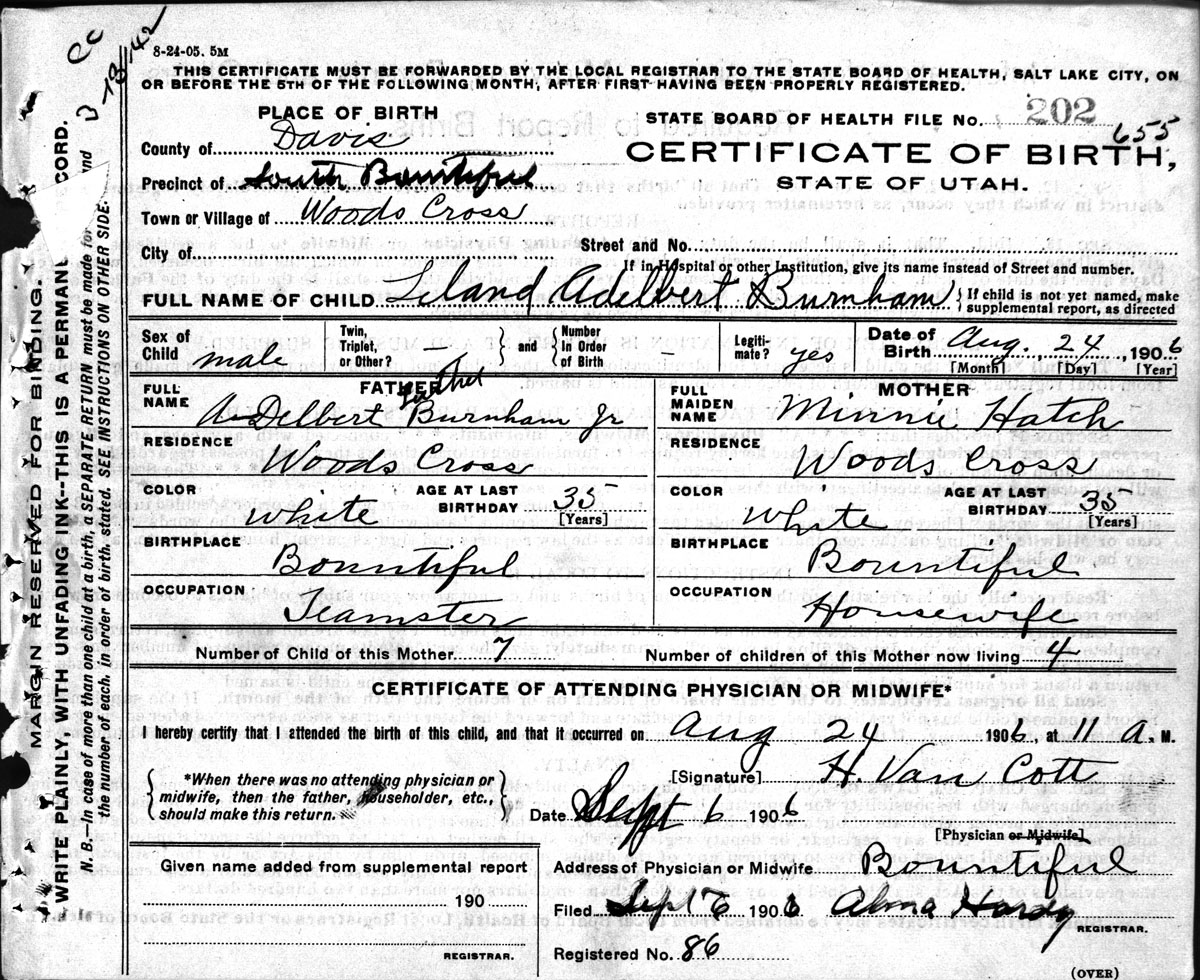 cc
3-18-42
8-24-05. 5M
THIS CERTIFICATE MUST BE FORWARDED BY THE LOCAL REGISTRAR TO THE STATE BOARD OF HEALTH, SALT LAKE CITY, ON
OR BEFORE THE 5TH OF THE FOLLOWING MONTH, AFTER FIRST HAVING BEEN PROPERLY REGISTERED.
PLACE OF BIRTH
STATE BOARD OF HEALTH FILE No. 202
655
County of Davis
CERTIFICATE OF BIRTH,
STATE OF UTAH.
Precinct of South Bountiful
Town or Village of Woods Cross
City of
Street and No.
If in Hospital or other Institution, give its name instead of Street and number.
FULL NAME OF CHILD Leland Adelbert Burnham { If child is not yet named, make
supplemental report, as directed
Sex of
Child male
Twin,
Triplet,
or Other? —
} and {
Number
In Order
of Birth —
Legiti-
mate? yes
Date of
Birth Aug. 24, 1906
[Month] [Day] [Year]
FATHER
FULL
NAME A Delbert Burnham Jr
RESIDENCE
Woods Cross
COLOR
White
AGE AT LAST
BIRTHDAY 35
[Years]
BIRTHPLACE
Bountiful
OCCUPATION
Teamster
MOTHER
FULL
MAIDEN
NAME Minnie Hatch
RESIDENCE
Woods Cross
COLOR
White
AGE AT LAST
BIRTHDAY 35
[Years]
BIRTHPLACE
Bountiful
OCCUPATION
Housewife
Number of Child of this Mother 7
Number of children of this Mother now living 4
CERTIFICATE OF ATTENDING PHYSICIAN OR MIDWIFE*
I hereby certify that I attended the birth of this child, and that it occurred on Aug 24 1906, at 11 A. M.
{ *When there was no attending physician or
midwife, then the father, householder, etc.,
should make this return. }
[Signature] H. Van Cott
Date Sept 6 1906
[Physician or Midwife]
Given name added from supplemental report
190
REGISTRAR.
Address of Physician or Midwife Bountiful
Filed Sept 6 1906 Alma Hardy
REGISTRAR.
Registered No. 86
(OVER)
MARGIN RESERVED FOR BINDING.
WRITE PLAINLY, WITH UNFADING INK--THIS IS A PERMAN CORD.
N. B.—In case of more than one child at a birth, a SEPARATE RETURN must be made for and
the number of each, in order of birth, stated. SEE INSTRUCTIONS ON OTHER SIDE.